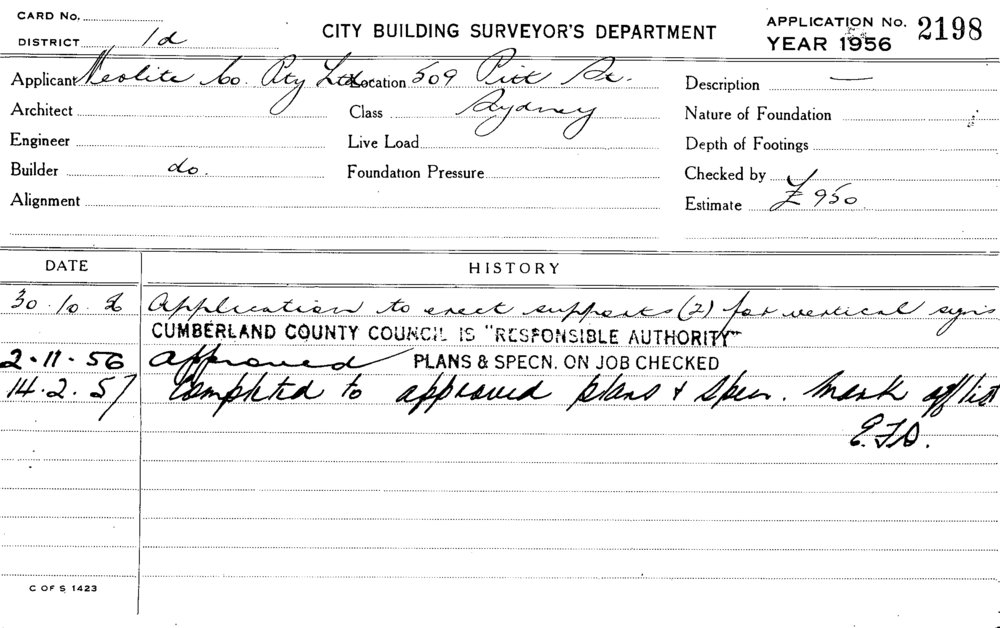 CARD No.
DISTRICT 1d
CITY BUILDING SURVEYOR'S DEPARTMENT
APPLICATION No. 2198
YEAR 1956
Applicant Neolite Co. Pty Ltd
Location 509 Pitt St.
Description —
Architect
Class Sydney
Nature of Foundation
Engineer
Live Load
Depth of Footings
Builder do.
Foundation Pressure
Checked by
Alignment
Estimate £950
DATE HISTORY
30.10.56 Application to erect supports (2) for vertical signs
CUMBERLAND COUNTY COUNCIL IS "RESPONSIBLE AUTHORITY"
2.11.56 approved PLANS & SPECN. ON JOB CHECKED
14.2.57 Completed to approved plans & specn. Mark off list
E.F.D.
C OF S 1423